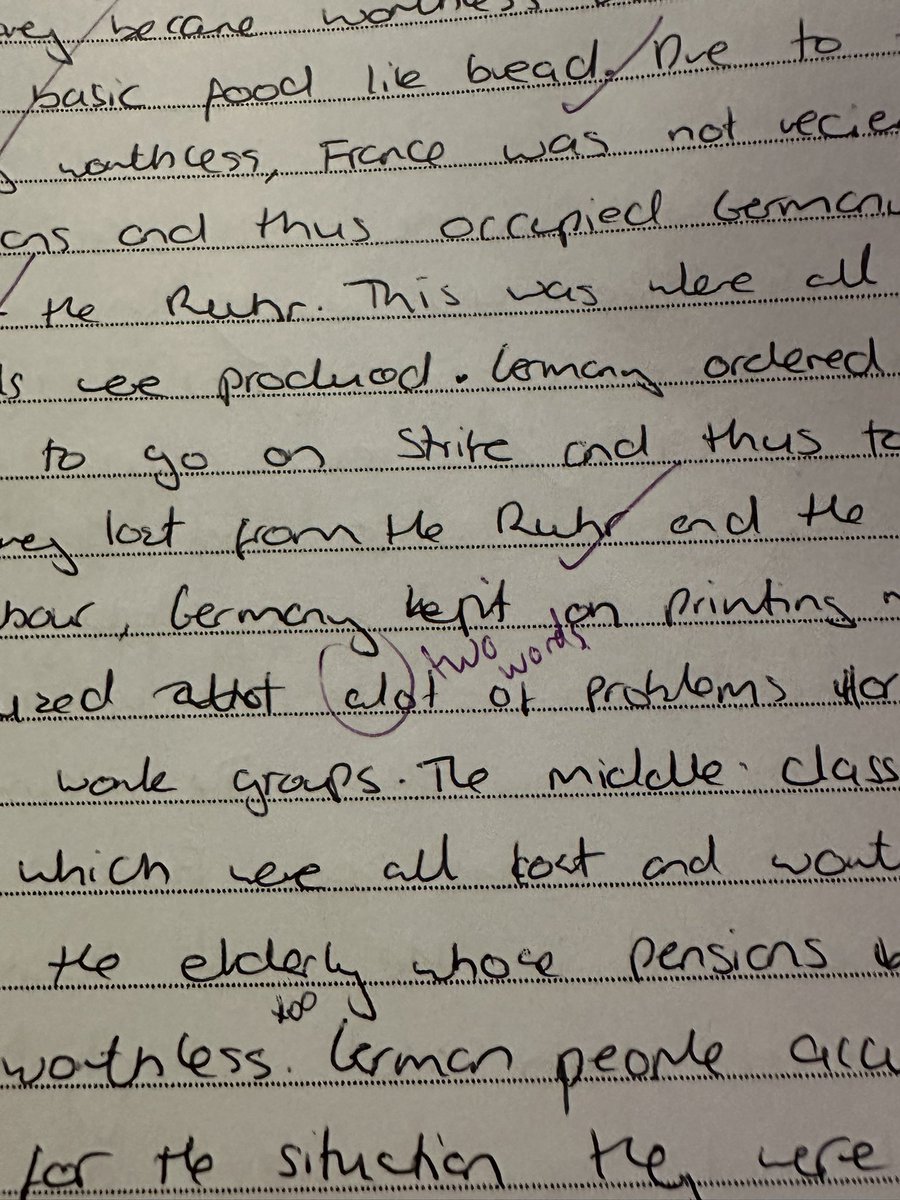 became worthless
basic food like bread. Due to
worthless, France was not recie
ons and thus occupied Germany
the Ruhr. This was were all
ls were produced. Germany ordered
to go on strike and thus to
ney lost from the Ruhr and the
bour, Germany kept on printing
alot of problems for
two words
work groups. The middle class
which were all lost and wort
the elderly whose pensions
too
worthless. German people accu
for the situation they were